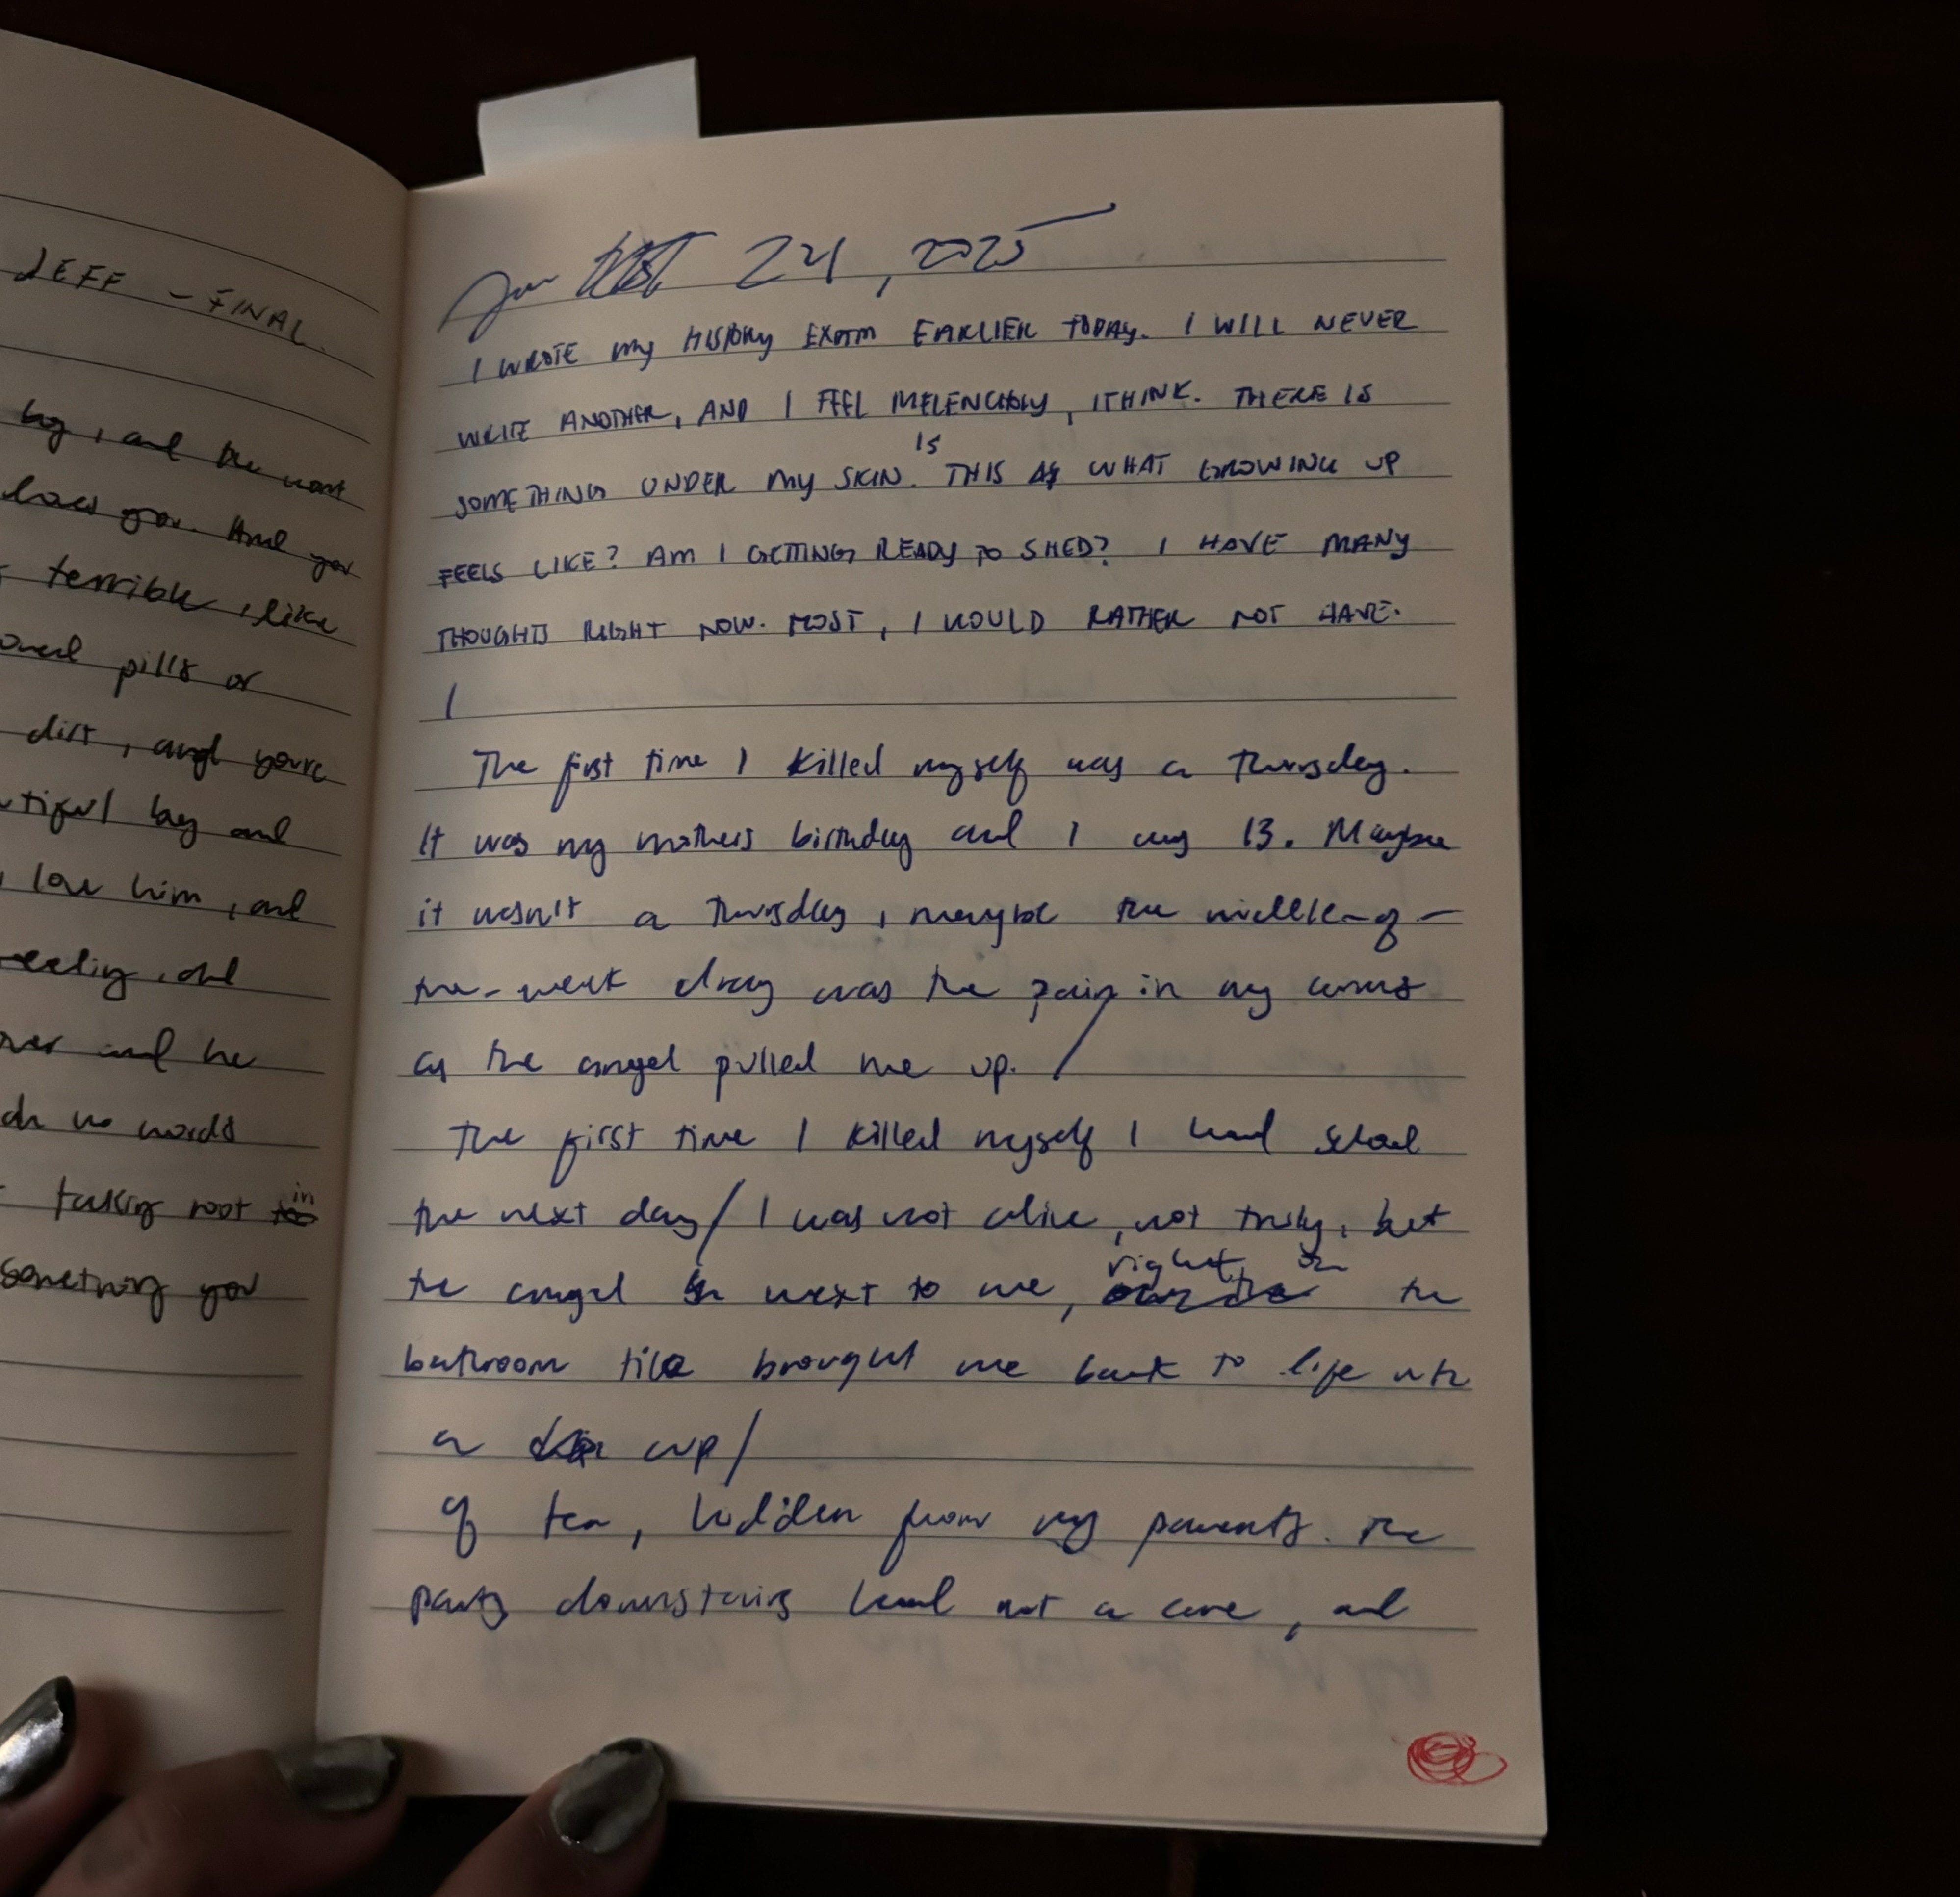 JEFF - FINAL.
boy, and he want
loves you. And you
terrible, like
pills or
dirt, and youre
boy and
love him, and
and
and he
no words
taking root in
something you
Jun 24, 2025
I WROTE my HISTORY EXAM EARLIER TODAY. I WILL NEVER
WRITE ANOTHER, AND I FEEL MELENCHOLY, I THINK. THERE IS
SOMETHING UNDER my SKIN. IS THIS WHAT GROWING UP
FEELS LIKE? AM I GETTING READY TO SHED? I HAVE MANY
THOUGHTS RIGHT NOW. MOST, I WOULD RATHER NOT HAVE.
I
The first time I killed myself was a Thursday.
It was my mothers birthday and I was 13. Maybe
it wasn't a Thursday, maybe the middle-of-
the-week drag was the pain in my arms
as the angel pulled me up. /
The first time I killed myself I had school
the next day / I was not alive, not truly, but
the angel next to me, right on the
bathroom tile brought me back to life with
a cup /
of tea, hidden from my parents. The
party downstairs had not a care, and